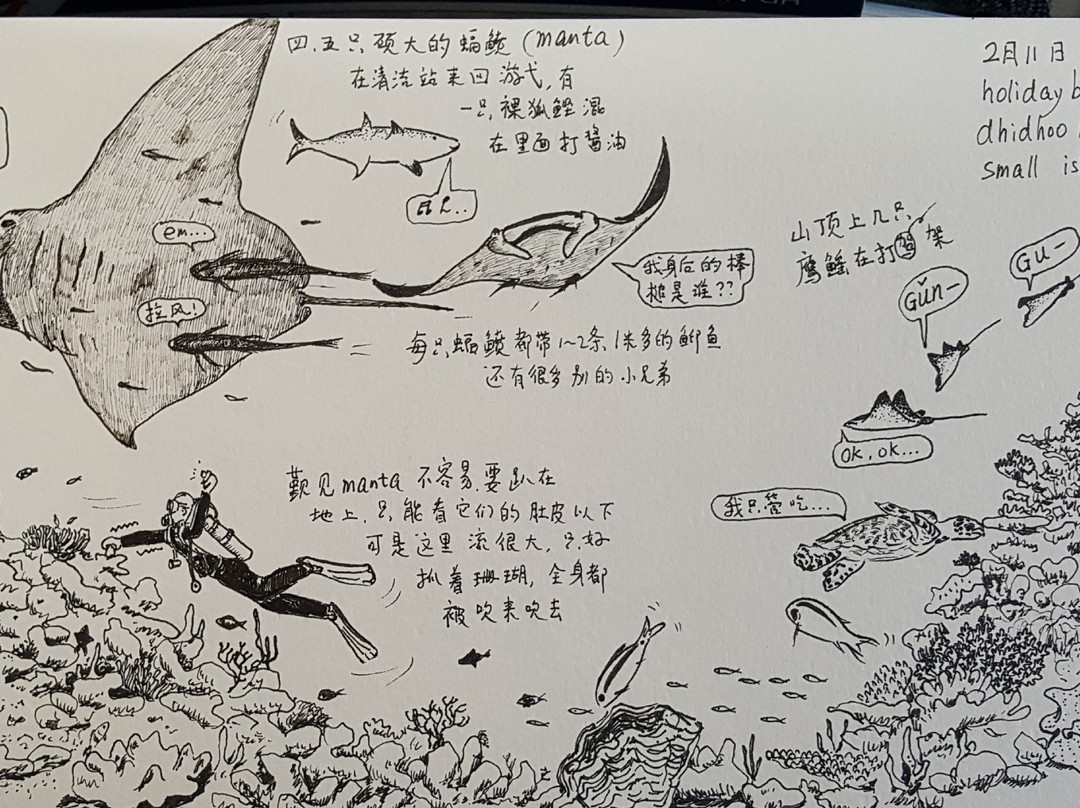 四.五只硕大的蝠鲼(manta)
在清洁站来回游弋,有
一只裸狐鲣混
在里面打酱油
em...
拉风!
我身后的棒
槌是谁??
每只蝠鲼都带1~2条1米多的䲟鱼
还有很多别的小兄弟
2月11日
holiday
dhidhoo
small is
山顶上几只
鹰鳐在打架
Gu-
Gǔn-
OK,OK...
觐见manta不容易.要趴在
地上.只能看它们的肚皮以下
可是这里流很大,只好
抓着珊瑚,全身都
被吹来吹去
我只管吃...